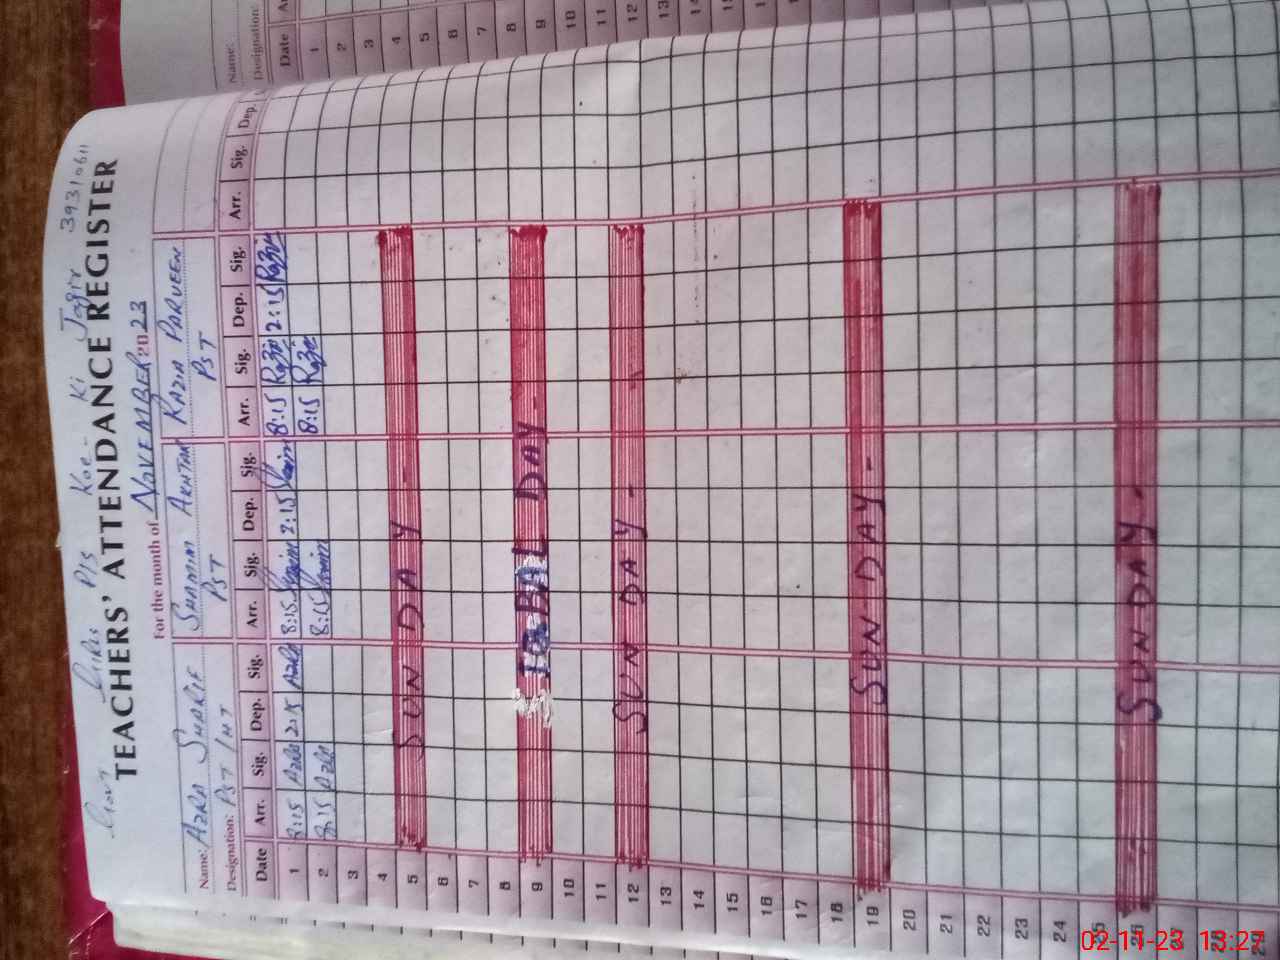 Govt Girls P/S Koe - Ki Jagir 39310611
TEACHERS' ATTENDANCE REGISTER
For the month of NOVEMBER 2023
Name: AZRA SHAKIE SHAMIM AKHTAR RAZIA PARVEEN
Designation: PST/HT PST PST
Date Arr. Sig. Dep. Sig. Arr. Sig. Dep. Sig. Arr. Sig. Dep. Sig. Arr. Sig. Dep.
1 8:15 Azra 2:15 Azra 8:15 Shamim 2:15 Shamim 8:15 Razia 2:15 Razia
2 8:15 Azra 8:15 Shamim 8:15 Razia
3
4
5 SUNDAY
6
7
8
9 IQBAL DAY -
10
11
12 SUNDAY -
13
14
15
16
17
18
19 SUNDAY -
20
21
22
23
24
25
26 SUNDAY -
27
28
29
Name:
Designation:
Date
1
2
3
4
5
6
7
8
9
10
11
12
13
14
02-11-23 13:27